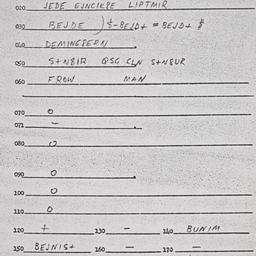 020 JEDE EJNCIKPE LIPTMIR
030 BEJDE )$-BEJD+ = BEJD+ $
040 DEMINGPEPN
050 S+N8IR QSG CLN S+N8UR
060 FROW MAN
070 O
071 -
080
090 O
100 O
110 O
120 + 130 - 140 BUNIM
150 BEJNIS+ 160 - 170 -